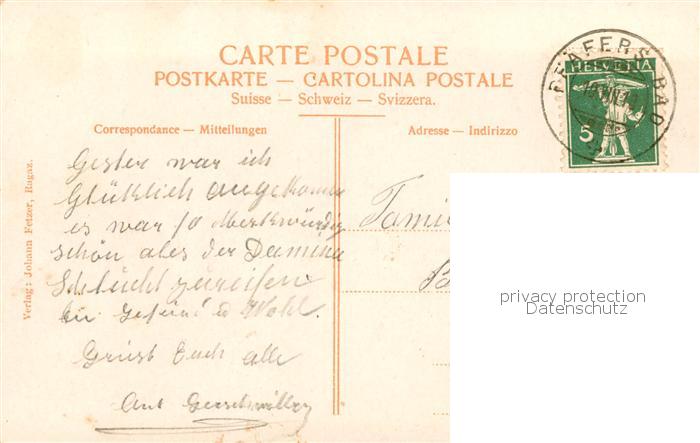 CARTE POSTALE
POSTKARTE — CARTOLINA POSTALE
Suisse — Schweiz — Svizzera.
Correspondance — Mitteilungen
Adresse — Indirizzo
PFÄFERS BAD
HELVETIA
5
Gester war ich
Glücklich angekomme
es war so Merkwürdig
schön ales der Damina
Schlucht zureisen
bin Gesund u Wohl.
Grüsst Euch alle
Ant
Famil
Verlag: Johann Fetzer, Ragaz.
privacy protection
Datenschutz